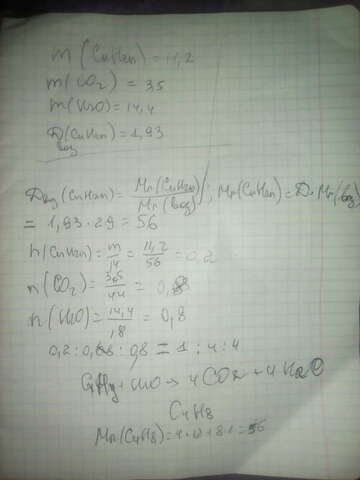 m(CnH2n) = 11,2
m(CO2) = 35
m(H2O) = 14,4
D(CnH2n) = 1,93
воз
Dвоз(CnH2n) = Mr(CnH2n)/Mr(воз); Mr(CnH2n) = D·Mr(воз)
= 1,93 · 29 = 56
n(CnH2n) = m/M = 11,2/56 = 0,2
n(CO2) = 35/44 = 0,8
n(H2O) = 14,4/18 = 0,8
0,2 : 0,8 : 0,8 = 1 : 4 : 4
→ 4CO2 + 4H2O
C4H8
Mr(C4H8) = 4·12+8·1 = 56